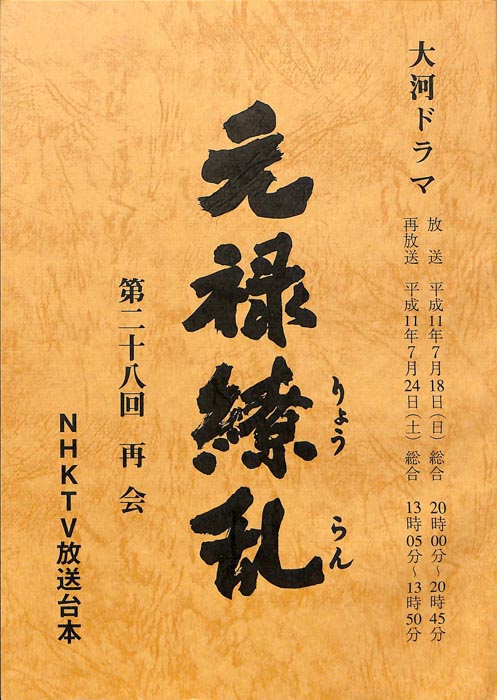 大河ドラマ
放送 平成11年7月18日(日) 総合 20時00分~20時45分
再放送 平成11年7月24日(土) 総合 13時05分~13時50分
元禄繚乱
りょう らん
第二十八回 再会
NHKTV放送台本